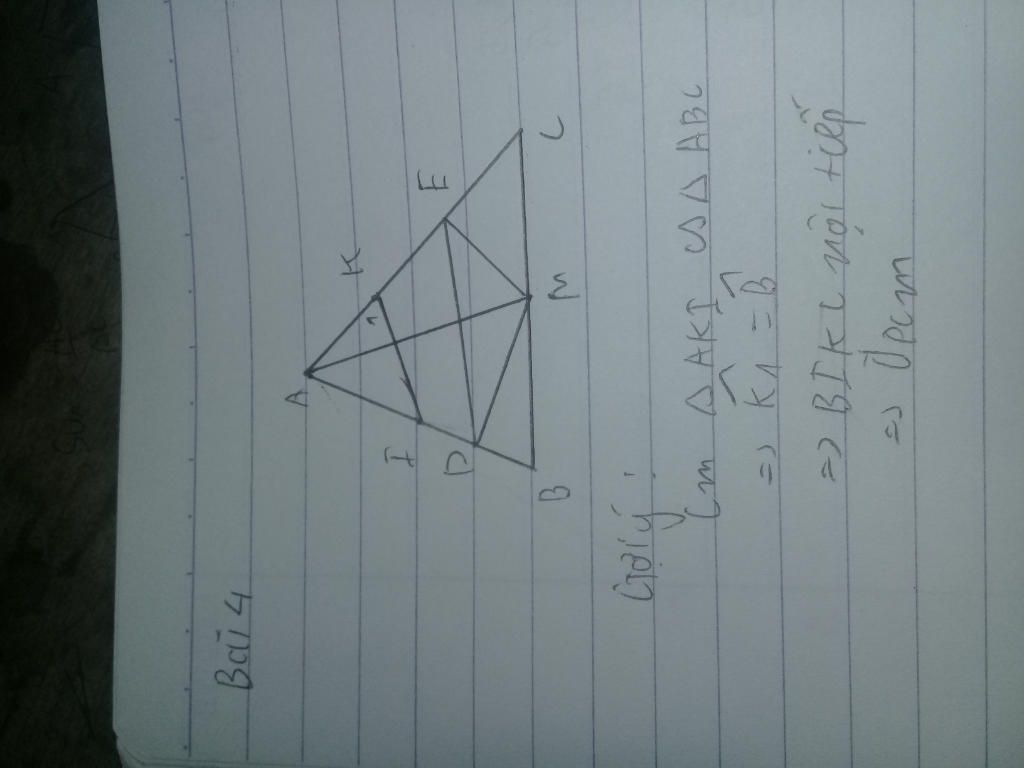 Bài 4
A
K
1
I
E
D
B
M
C
Gợi ý:
Cm Δ AKI ∽ Δ ABC
=> K̂1 = B̂
=> BIKC nội tiếp
=> Đpcm